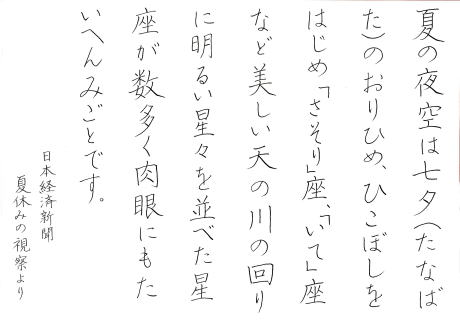 夏の夜空は七夕(たなば
た)のおりひめ、ひこぼしを
はじめ「さそり」座、「いて」座
など美しい天の川の回り
に明るい星々を並べた星
座が数多く肉眼にもた
いへんみごとです。
日本経済新聞
夏休みの視察より